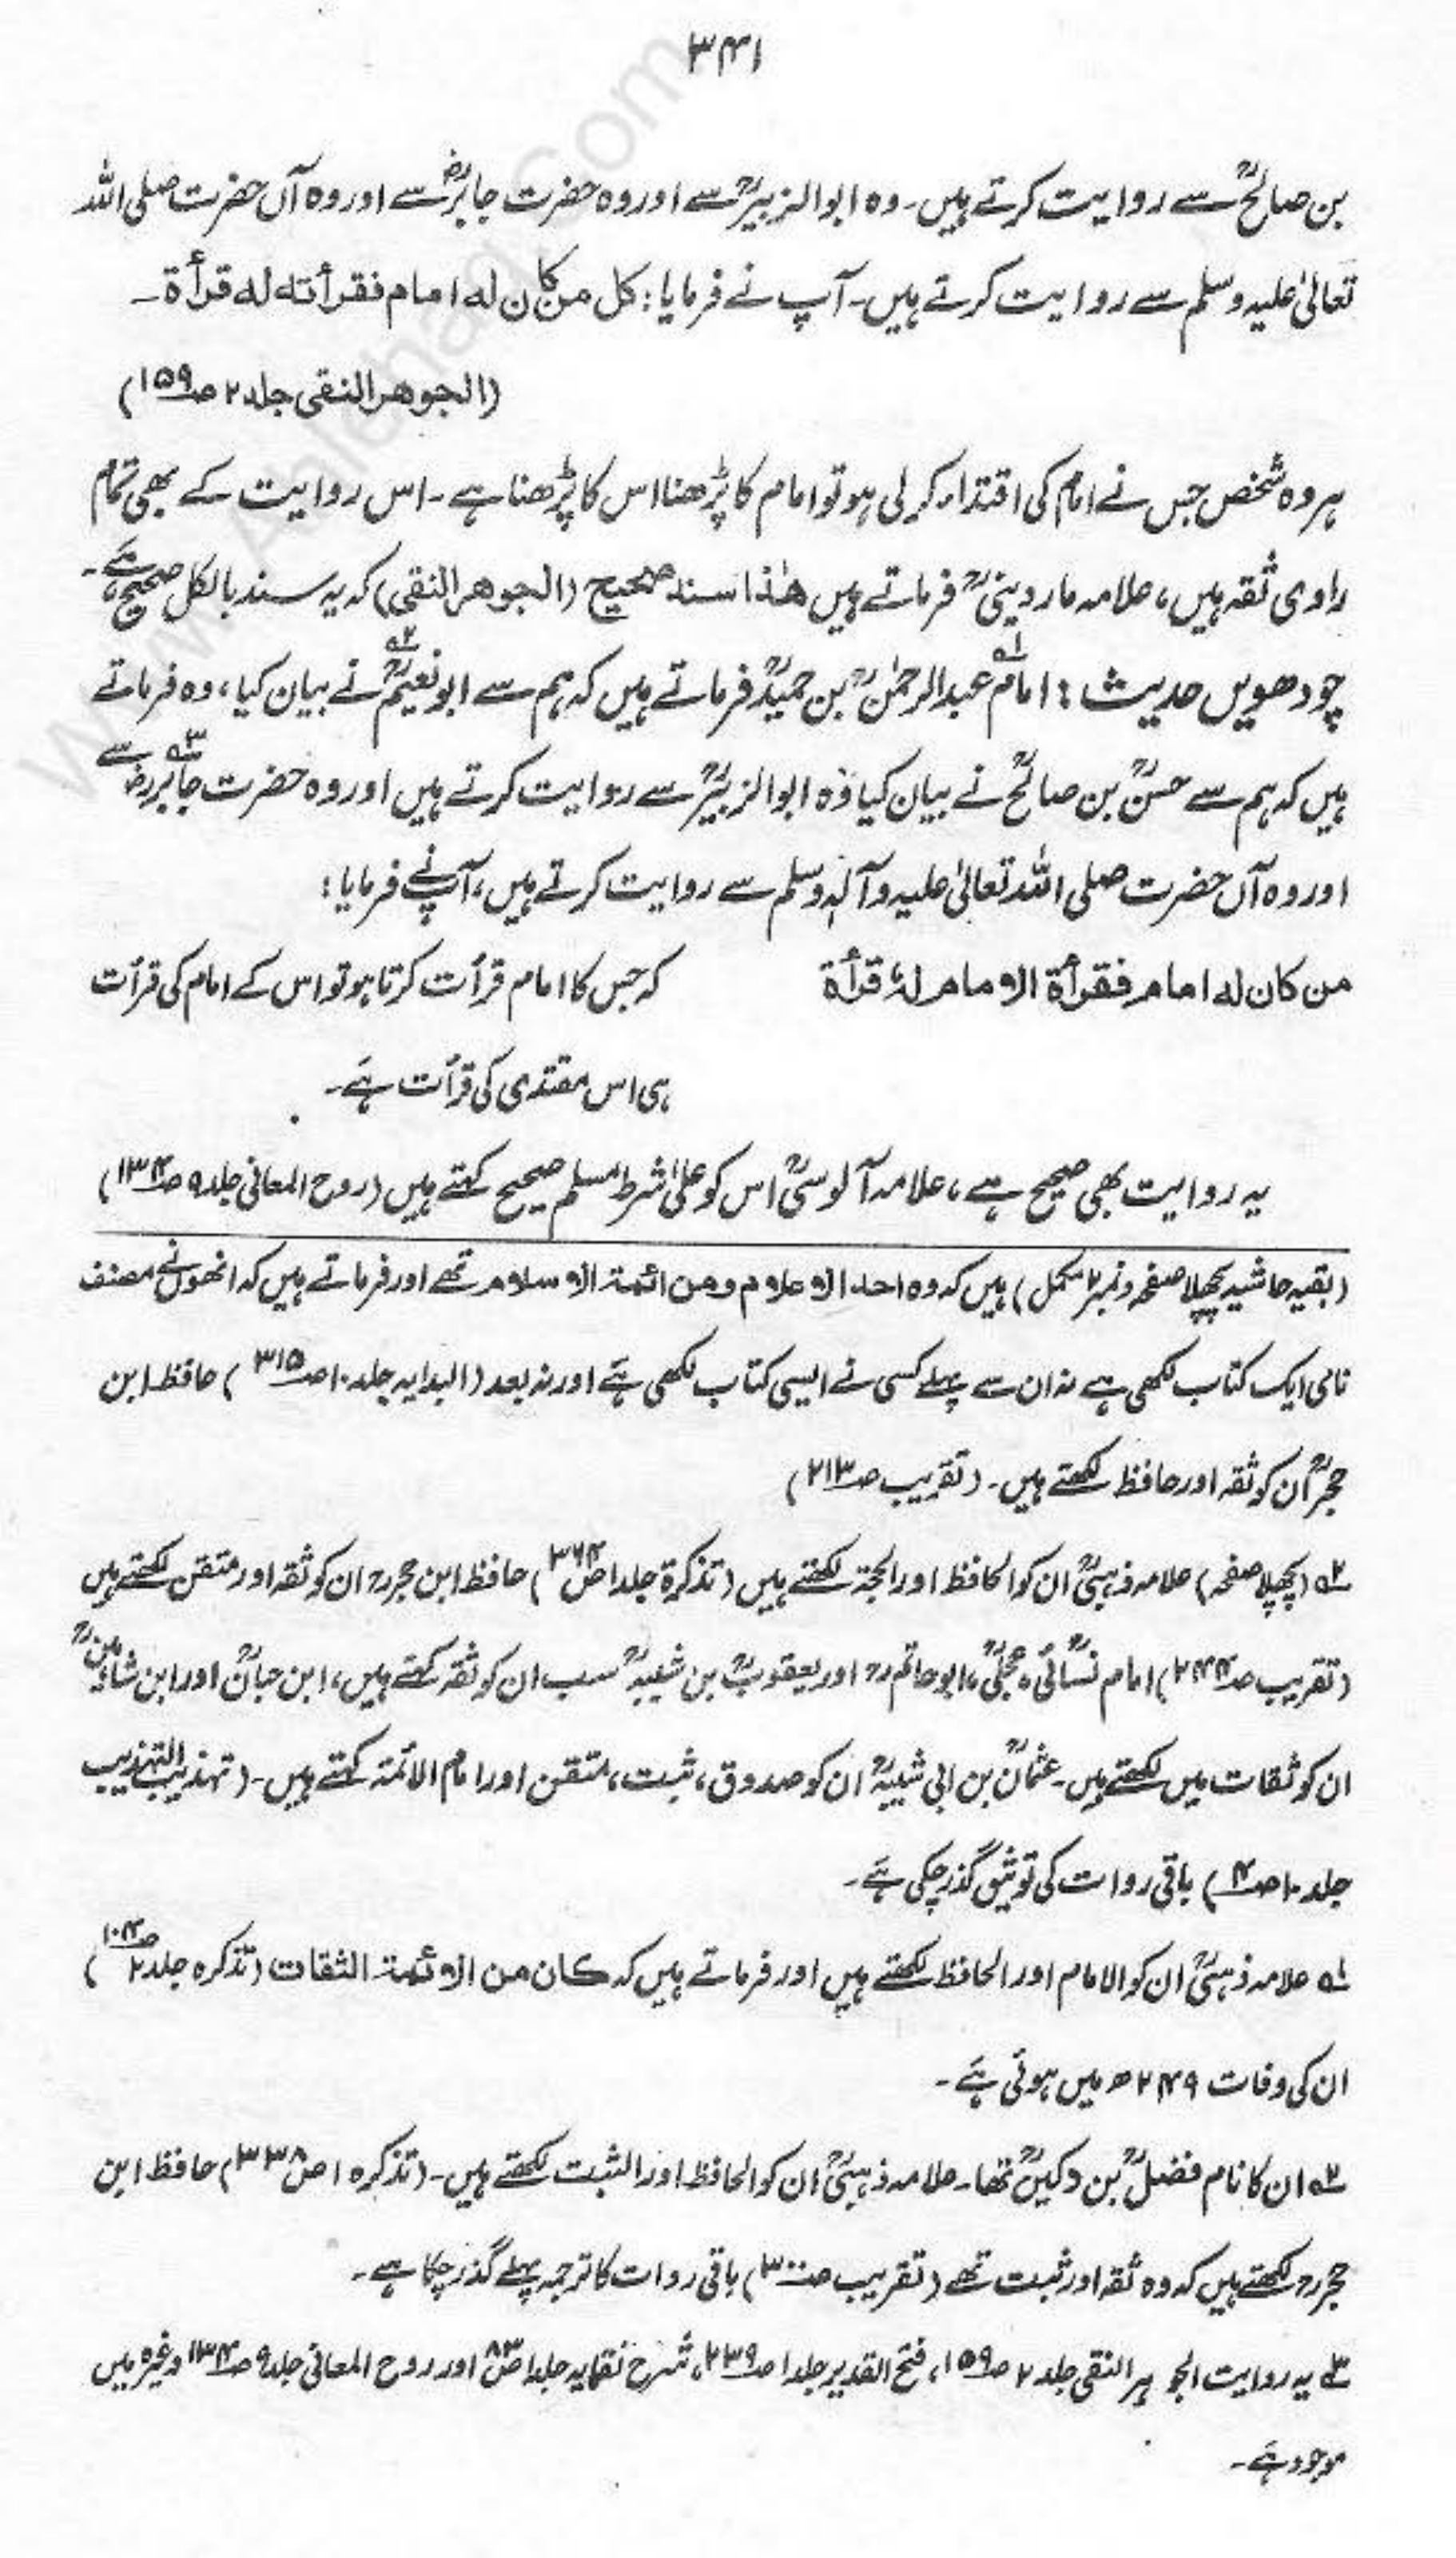 ۳۴۱
بن صالحؒ سے روایت کرتے ہیں۔ وہ ابوالزبیرؒ سے اور وہ حضرت جابرؓ سے اور وہ آں حضرت صلی اللہ
تعالیٰ علیہ وسلم سے روایت کرتے ہیں۔ آپ نے فرمایا: کل من کان له امام فقرأته له قرأة۔
(الجوهر النقی جلد ۲ صـ۱۵۹)
ہر وہ شخص جس نے امام کی اقتداء کر لی ہو تو امام کا پڑھنا اس کا پڑھنا ہے۔ اس روایت کے بھی تمام
راوی ثقہ ہیں، علامہ ماردینیؒ فرماتے ہیں هٰذا سند صحیح (الجوهر النقی) کہ یہ سند بالکل صحیح ہے۔
چودھویں حدیث: امام۱؎ عبدالرحمٰنؒ بن حمیدؒ فرماتے ہیں کہ ہم سے ابونعیمؒ۲؎ نے بیان کیا، وہ فرماتے
ہیں کہ ہم سے حسنؒ بن صالحؒ نے بیان کیا وہ ابوالزبیرؒ سے روایت کرتے ہیں اور وہ حضرت جابرؓ۳؎ سے
اور وہ آں حضرت صلی اللہ تعالیٰ علیہ وآلہٖ وسلم سے روایت کرتے ہیں، آپ نے فرمایا:
من کان له امام فقرأة الامام لهٗ قرأة کہ جس کا امام قرأت کرتا ہو تو اس کے امام کی قرأت
ہی اس مقتدی کی قرأت ہے۔
یہ روایت بھی صحیح ہے، علامہ آلوسیؒ اس کو علیٰ شرط مسلم صحیح کہتے ہیں (روح المعانی جلد ۹ صـ۱۳۴)
(بقیہ حاشیہ پچھلا صفحہ ونمبر۲ مکمل) ہیں کہ وہ احد الاعلام ومن ائمة الاسلام تھے اور فرماتے ہیں کہ انھوں نے مصنف
نامی ایک کتاب لکھی ہے نہ ان سے پہلے کسی نے ایسی کتاب لکھی ہے اور نہ بعد (البدایہ جلد ۱۰ صـ۳۱۵) حافظ ابن
حجرؒ ان کو ثقہ اور حافظ لکھتے ہیں۔ (تقریب صـ۲۱۳)
۲؎ (پچھلا صفحہ) علامہ ذہبیؒ ان کو الحافظ اور الحجة لکھتے ہیں (تذکرة جلد ۱ صـ۳۶۴) حافظ ابن حجرؒ ان کو ثقہ اور متقن لکھتے ہیں
(تقریب صـ۲۴۴) امام نسائیؒ، عجلیؒ، ابوحاتمؒ اور یعقوبؒ بن شیبہؒ سب ان کو ثقہ کہتے ہیں، ابن حبانؒ اور ابن شاہینؒ
ان کو ثقات میں لکھتے ہیں۔ عثمانؒ بن ابی شیبہؒ ان کو صدوق، ثبت، متقن اور امام الائمۃ کہتے ہیں۔ (تہذیب التہذیب
جلد ۱۰ صـ۴) باقی روات کی توثیق گذر چکی ہے۔
۱؎ علامہ ذہبیؒ ان کو الامام اور الحافظ لکھتے ہیں اور فرماتے ہیں کہ کان من الائمة الثقات (تذکرہ جلد ۲ صـ۱۰۴)
ان کی وفات ۲۴۹ھ میں ہوئی ہے۔
۲؎ ان کا نام فضلؒ بن دکینؒ تھا۔ علامہ ذہبیؒ ان کو الحافظ اور الثبت لکھتے ہیں۔ (تذکرہ ۱ صـ۳۳۸) حافظ ابن
حجرؒ لکھتے ہیں کہ وہ ثقہ اور ثبت تھے (تقریب صـ۳۰۰) باقی روات کا ترجمہ پہلے گذر چکا ہے۔
۳؎ یہ روایت الجوہر النقی جلد ۲ صـ۱۵۹، فتح القدیر جلد ۱ صـ۲۳۹، شرح نقایہ جلد ۱ صـ۸۳ اور روح المعانی جلد ۹ صـ۱۳۴ وغیرہ میں
موجود ہے۔
www.Ahlehaq.Com